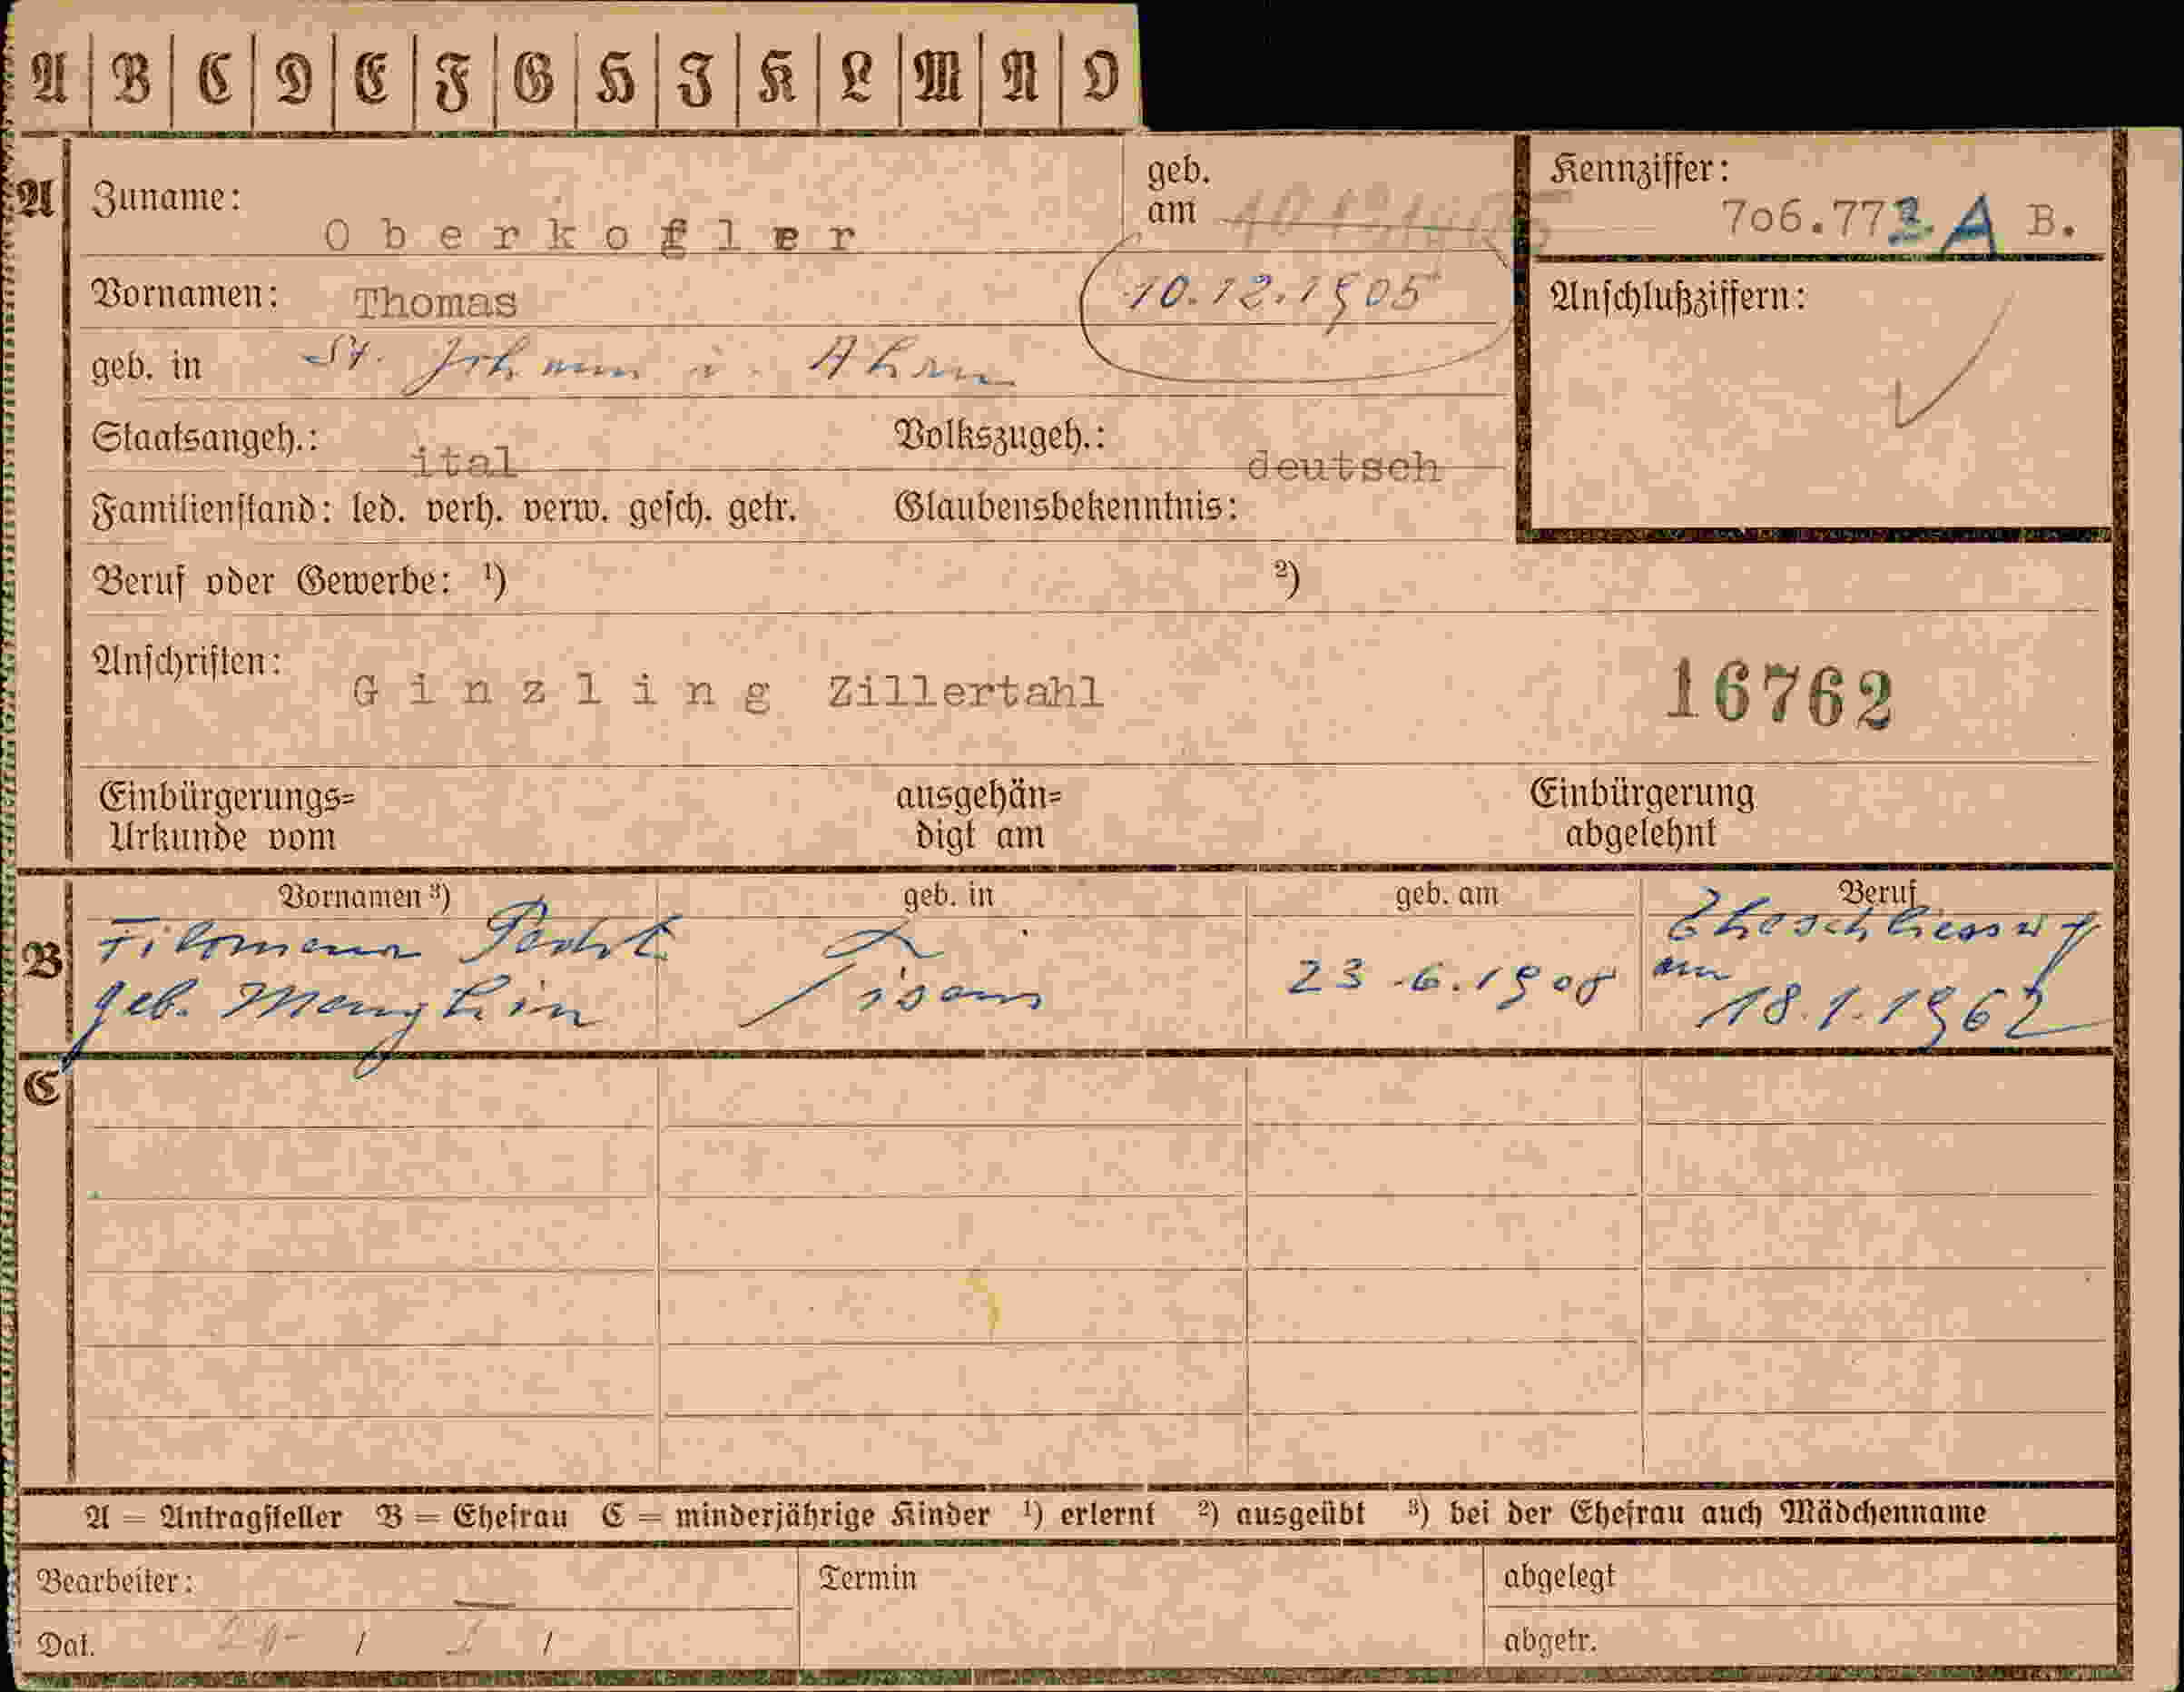 A B C D E F G H I K L M N O
A Zuname: Oberkofler
geb. am
Kennziffer: 706.773. A B.
Vornamen: Thomas
10.12.1905
Anschlußziffern:
geb. in St. Johann i. Ahrn
Staatsangeh.: ital Volkszugeh.: deutsch
Familienstand: led. verh. verw. gesch. getr. Glaubensbekenntnis:
Beruf oder Gewerbe: ¹) ²)
Anschriften: Ginzling Zillertahl
16762
Einbürgerungs=
Urkunde vom
ausgehän=
digt am
Einbürgerung
abgelehnt
Vornamen ³) geb. in geb. am Beruf
B Filomena
geb. Menghin
Tisens
23.6.1908
Eheschliessung
am
18.1.1962
C
A = Antragsteller B = Ehefrau C = minderjährige Kinder ¹) erlernt ²) ausgeübt ³) bei der Ehefrau auch Mädchenname
Bearbeiter: Termin abgelegt
Dat. abgetr.